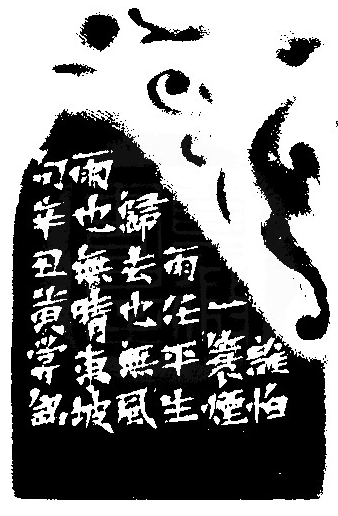 誰怕
一蓑煙
雨任平生
歸去也無風
雨也無晴東坡
句辛丑黃嘗銘